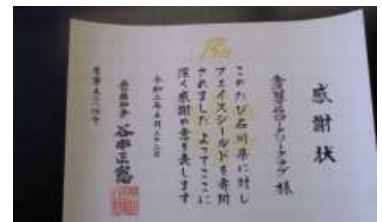 感謝状
ロータリークラブ 様
このたび石川県に対し
フェイスシールドを寄附
されました よってここに
深く感謝の意を表します
令和二年五月二十二日
石川県知事 谷本正憲